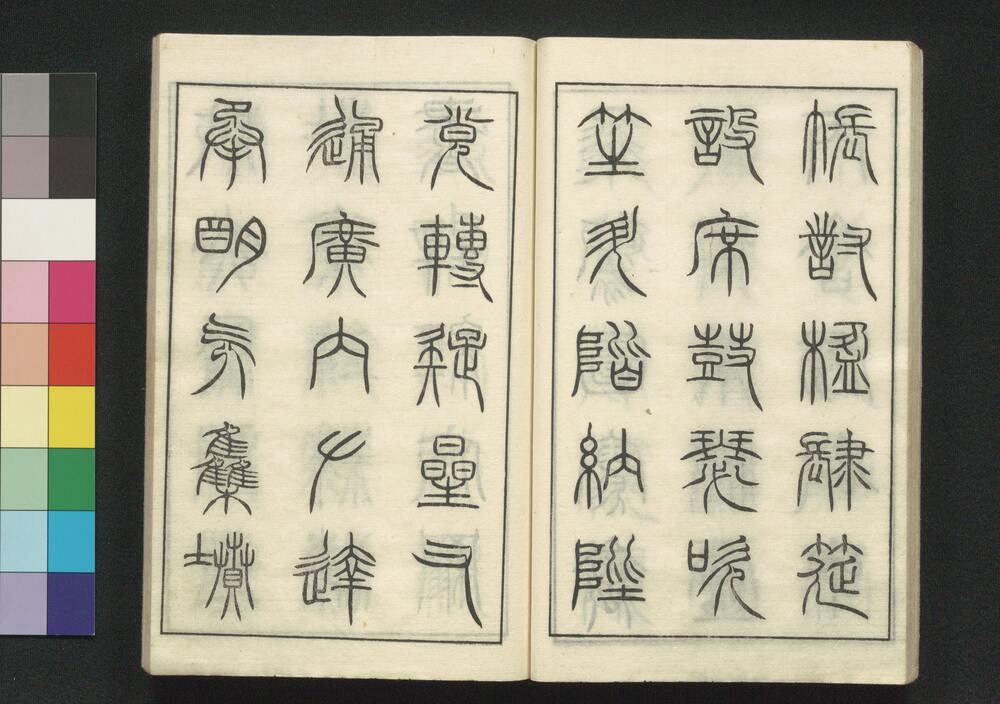 帳對楹肆筵
設席鼓瑟吹
笙升階納陛
弁轉疑星右
通廣內左達
承明既集墳